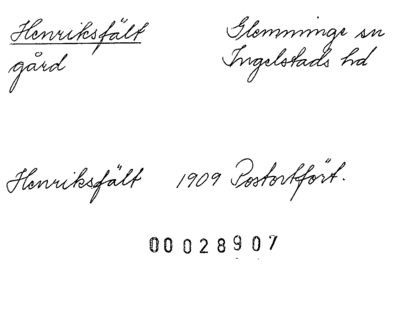 Henriksfält
gård
Glemminge sn
Ingelstads hd
Henriksfält 1909 Postortfört.
00028907